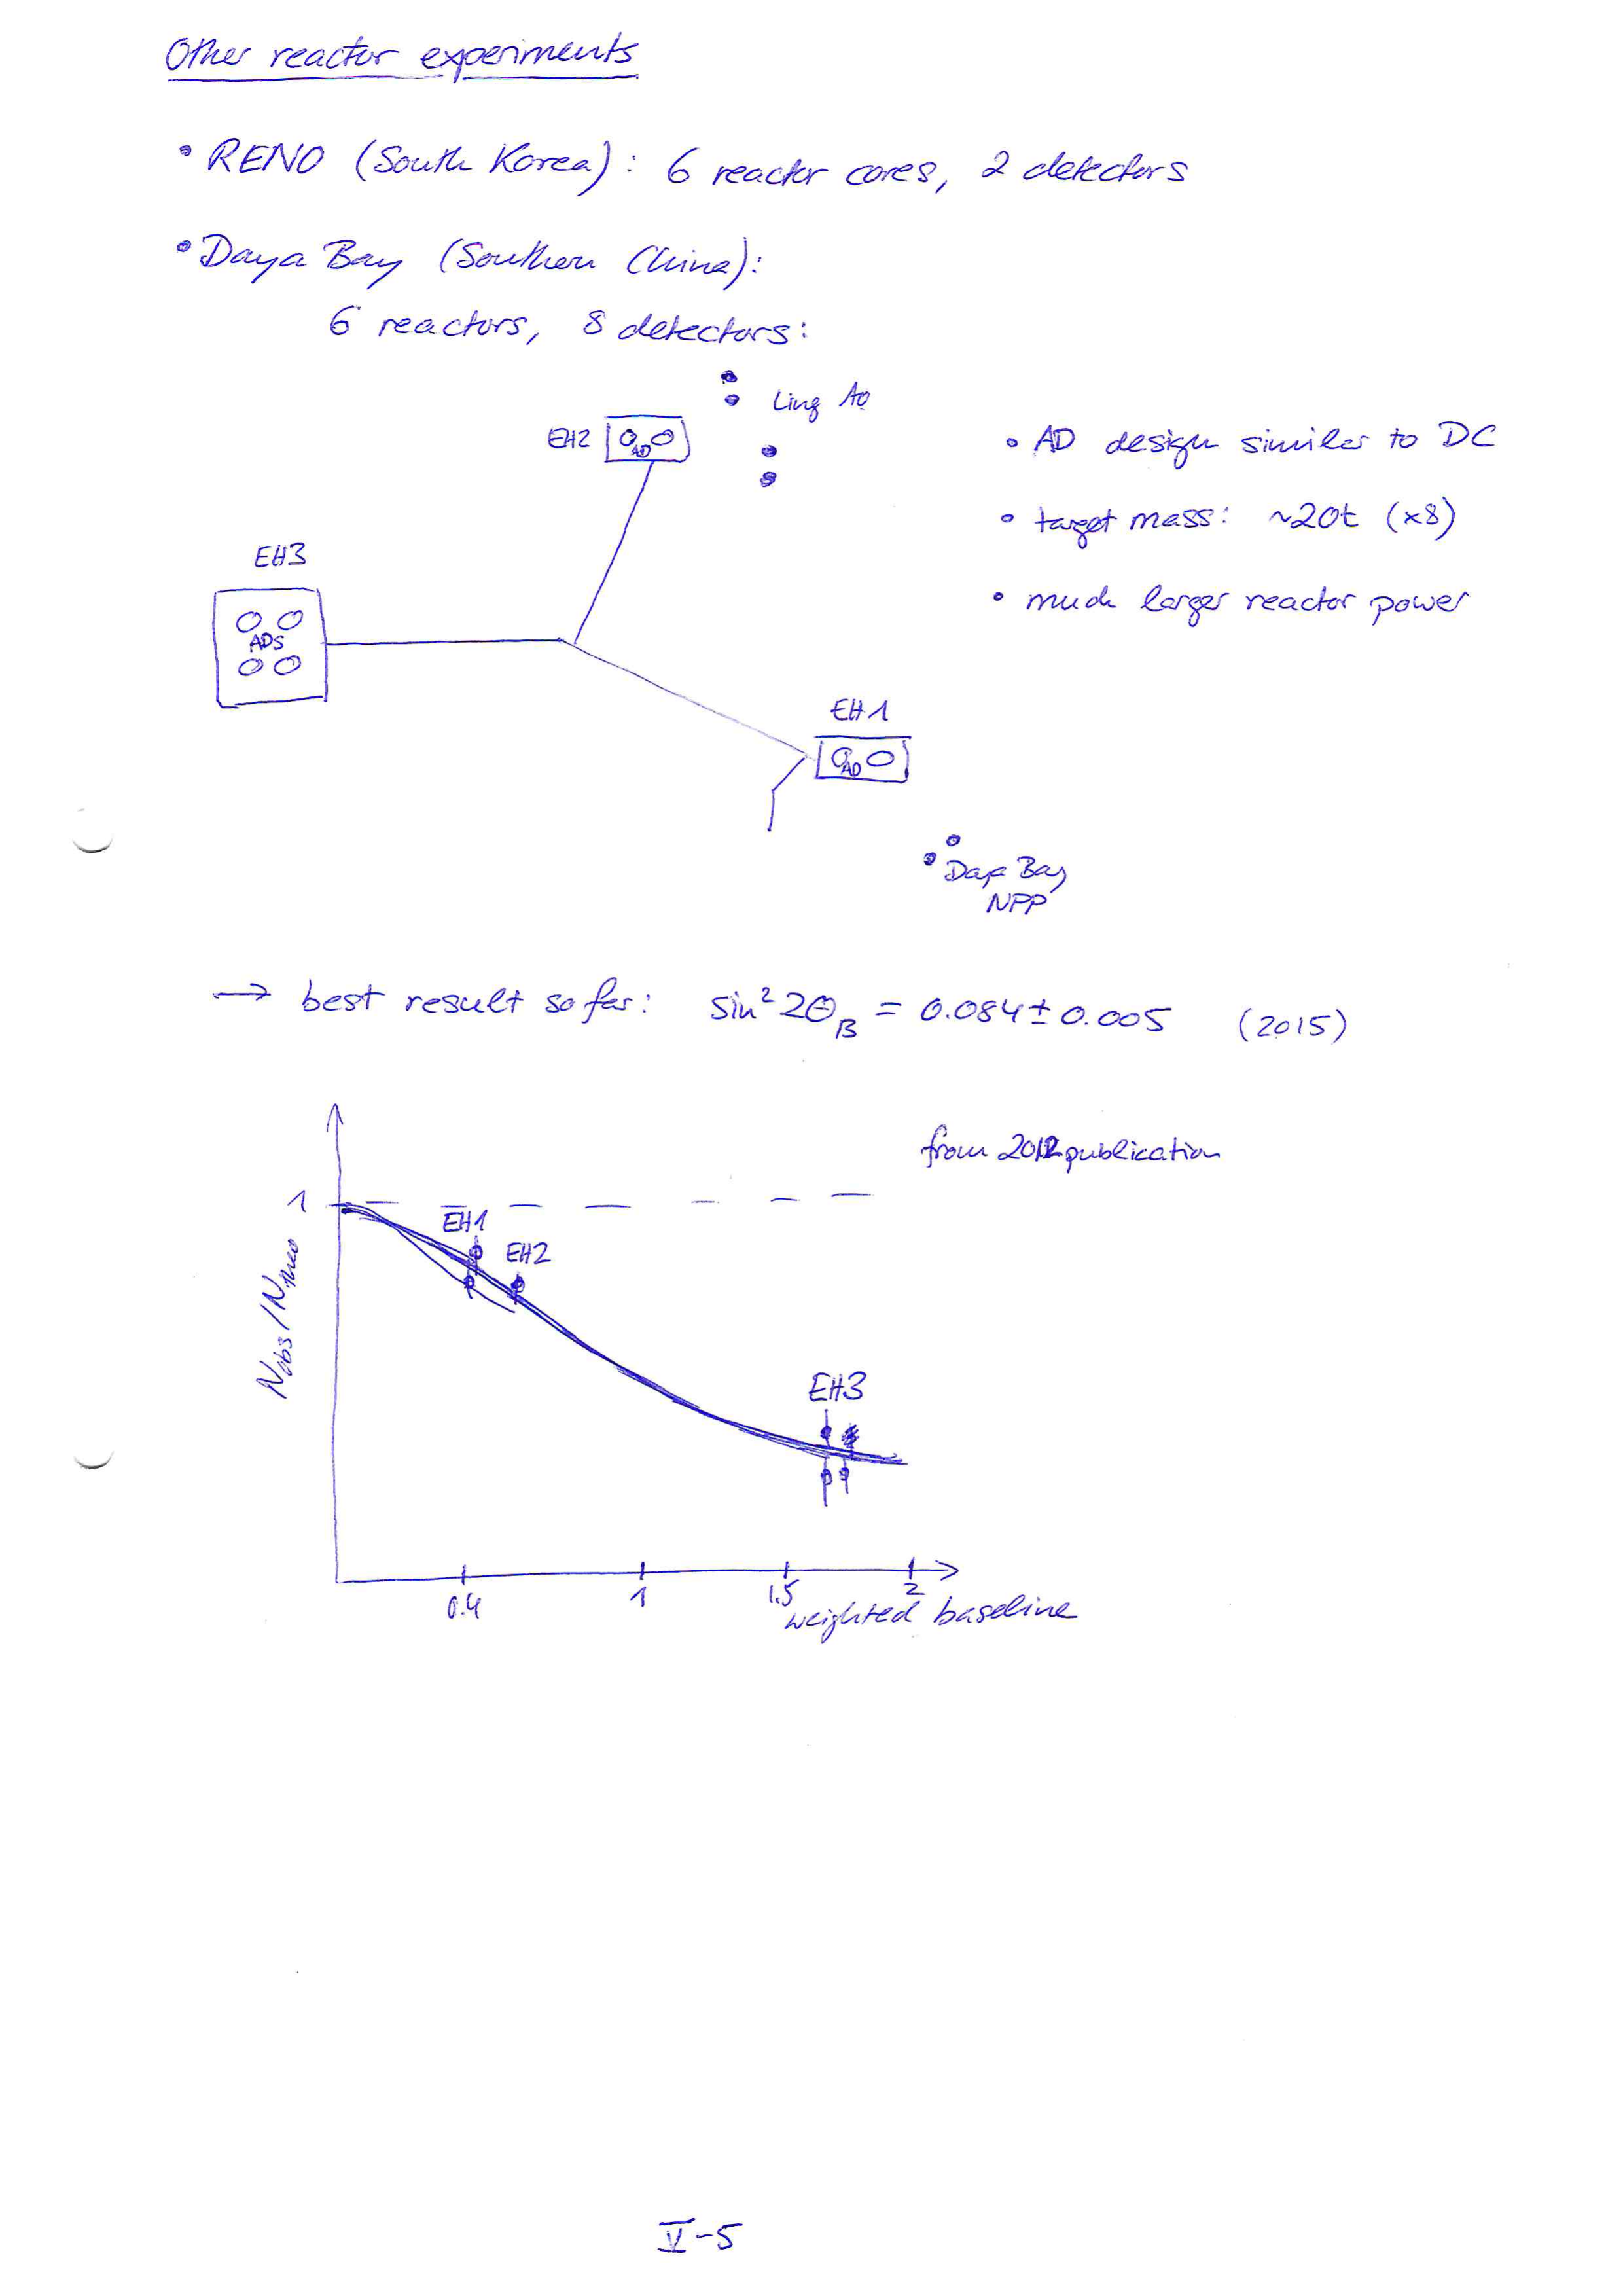 Other reactor experiments
• RENO (South Korea): 6 reactor cores, 2 detectors
• Daya Bay (Southern China):
6 reactors, 8 detectors:
Ling Ao
EH2
AD
• AD design similar to DC
• target mass: ~20t (x8)
• much larger reactor power
EH3
ADs
EH1
AD
Daya Bay
NPP
→ best result so far: sin² 2θ₁₃ = 0.084 ± 0.005 (2015)
from 2012 publication
1
EH1
EH2
EH3
N_obs / N_theo
0.4 1 1.5 2
weighted baseline
V-5